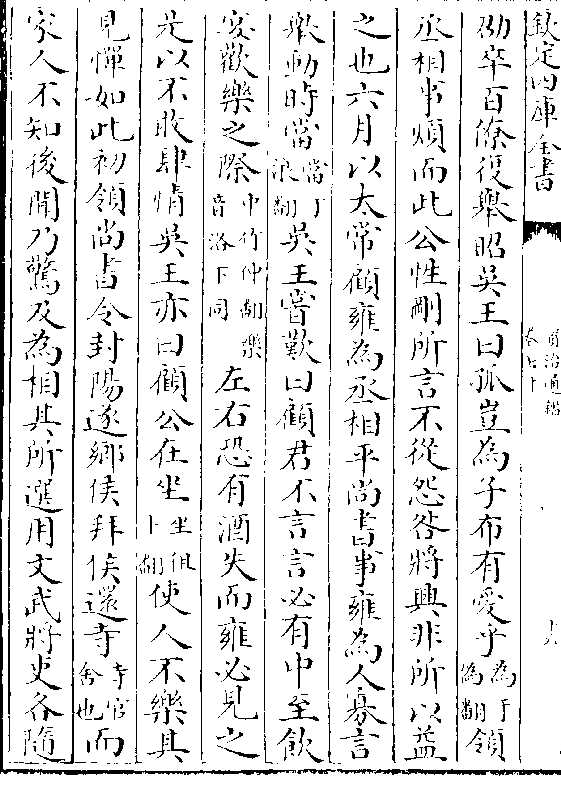 欽定四庫全書
資治通鑑
卷七十
劭卒百僚復舉昭吳王曰孤豈為子布有愛乎為于偽翻領
丞相事煩而此公性剛所言不從怨咎將興非所以益
之也六月以太常顧雍為丞相平尚書事雍為人寡言
舉動時當當丁浪翻吳王嘗歎曰顧君不言言必有中至飲
宴歡樂之際中竹仲翻樂音洛下同左右恐有酒失而雍必見之
是以不敢肆情吳王亦曰顧公在坐坐徂卧翻使人不樂其
見憚如此初領尚書令封陽遂鄉侯拜侯還寺寺官舍也而
家人不知後聞乃驚及為相其所選用文武將吏各隨